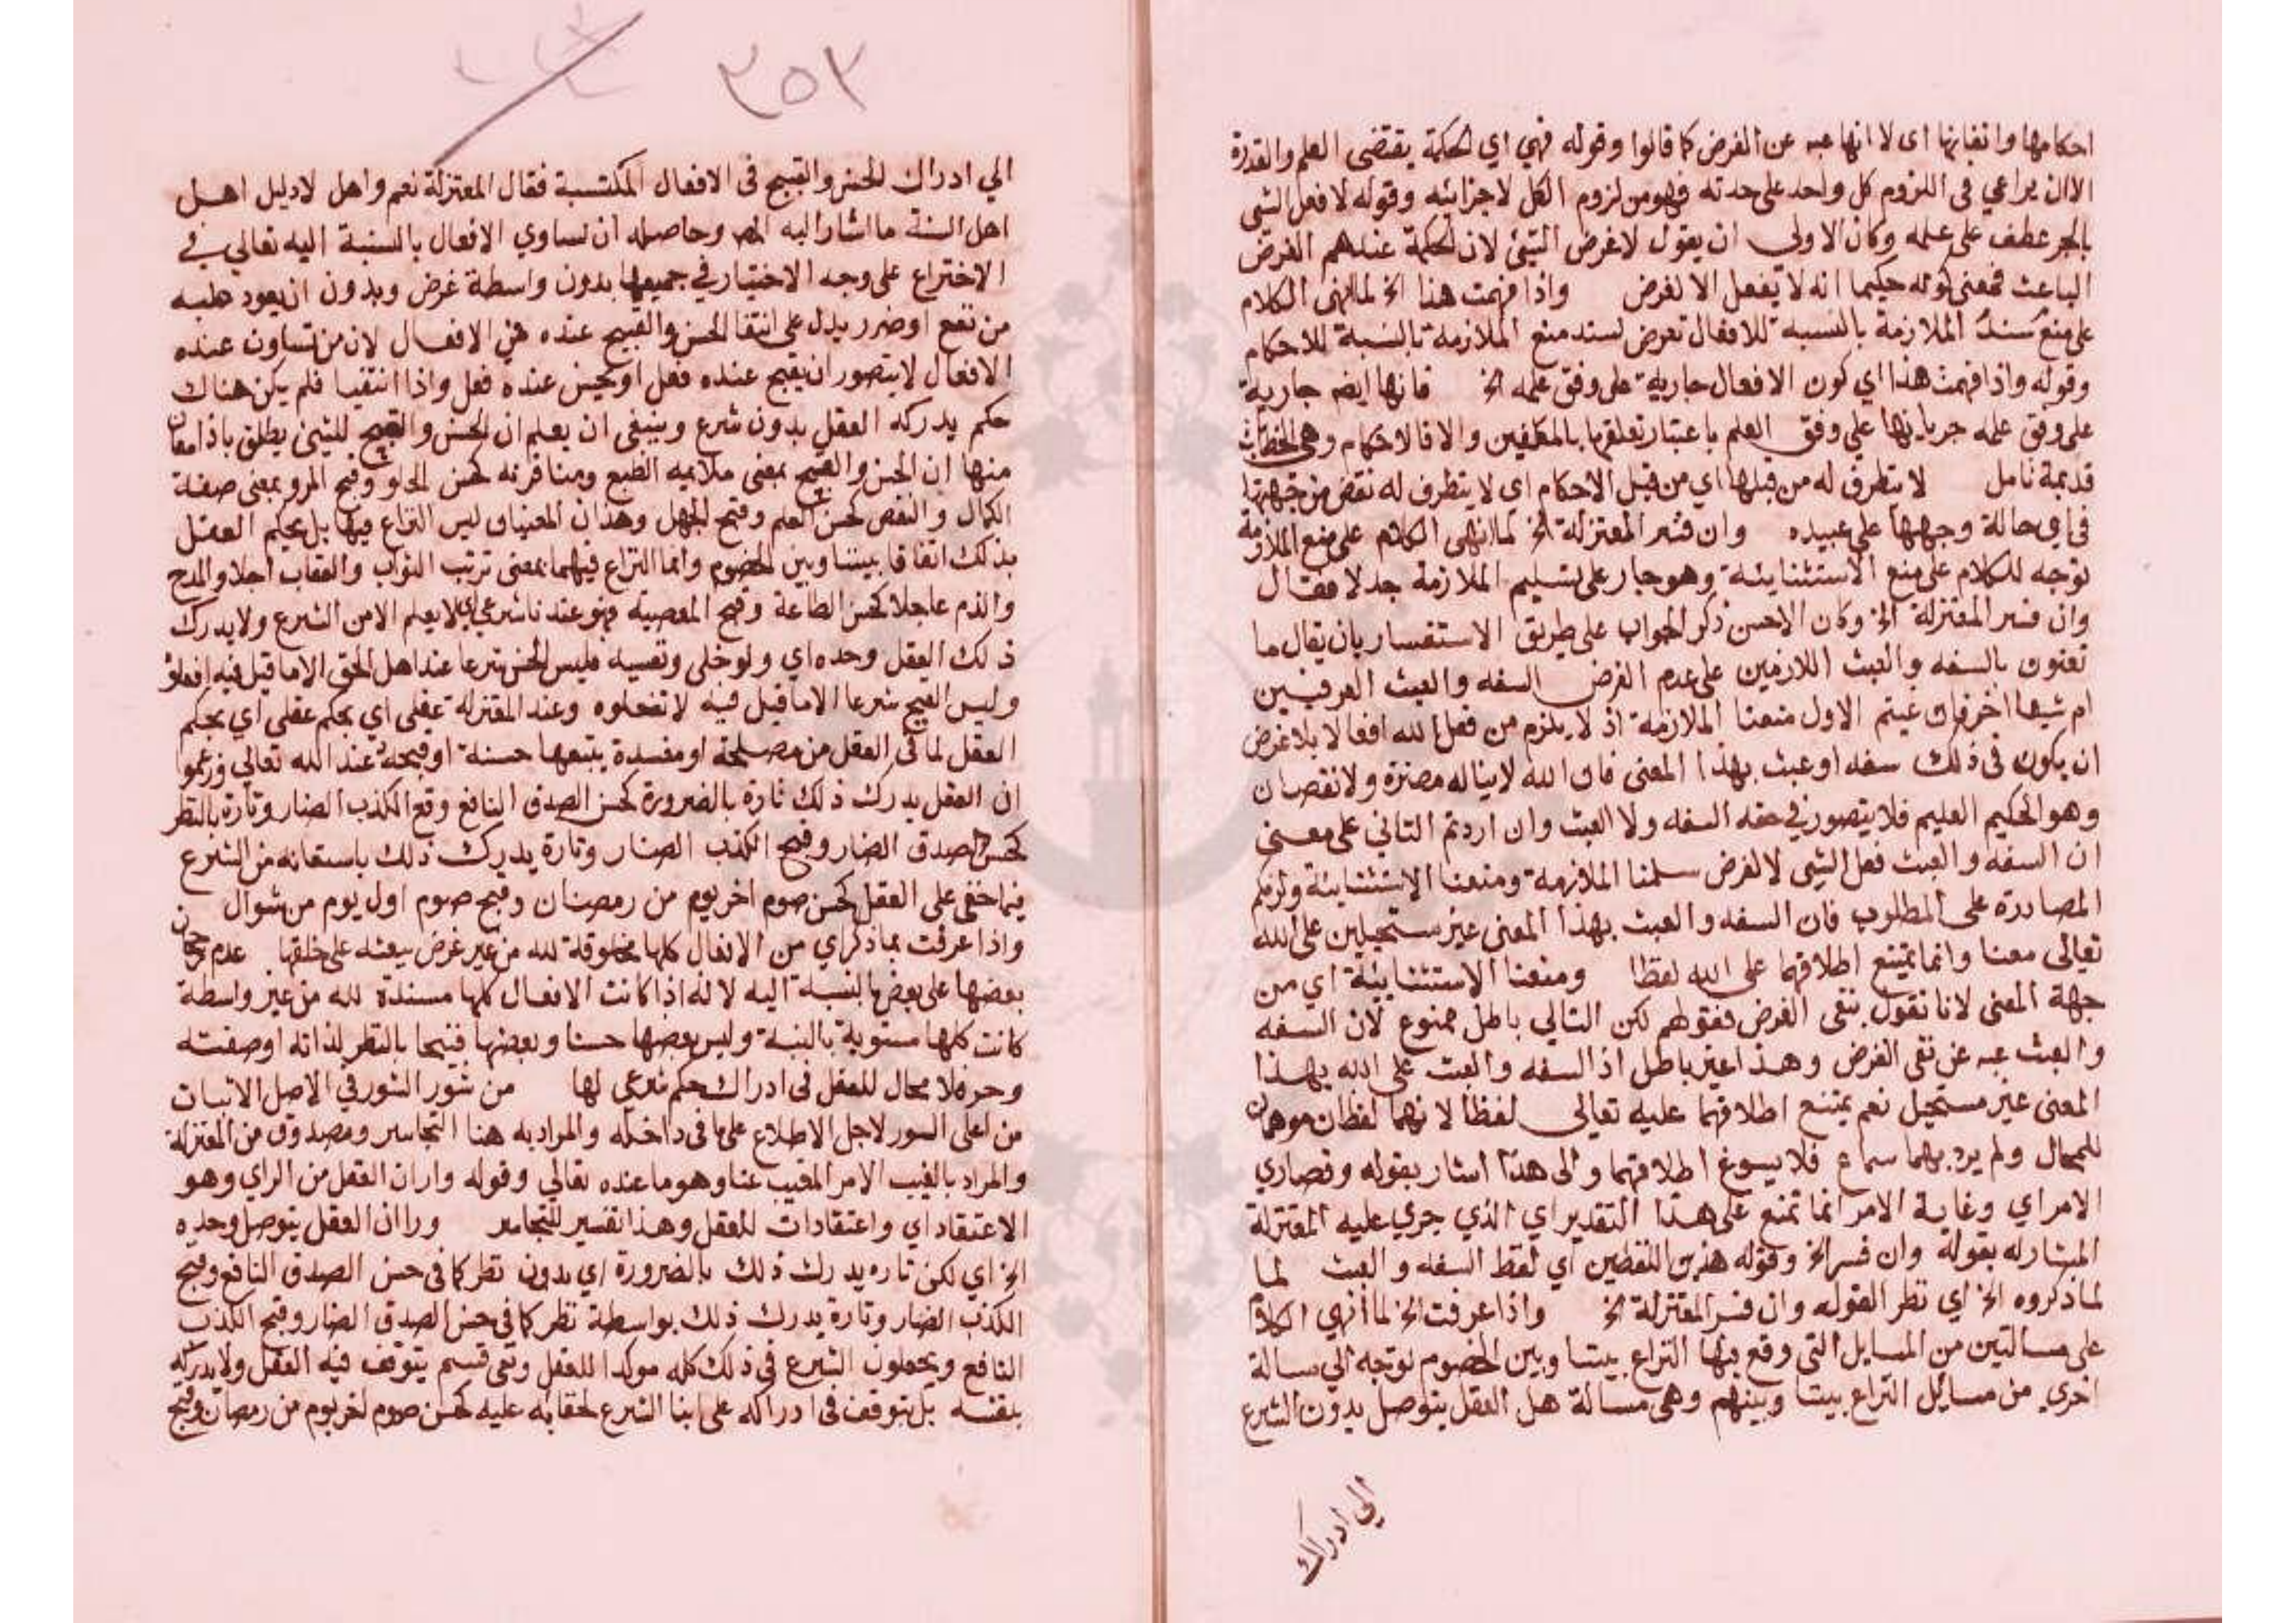 احكامها واتقانها اى لا انها عبه عن الغرض كما قالوا وقوله فهي اي الحكمة يقتضى العلم والقدرة
الاان يراعي فى اللزوم كل واحد على حدته فهو من لزوم الكل لاجزائه وقوله لا فعل الشي
بالجر عطف على علمه وكان الاولى ان يقول لا غرض الشئ لان الحكمة عندهم الغرض
الباعث فمعنى كونه حكيما انه لا يفعل الا لغرض واذا فهمت هذا الخ لما انهى الكلام
على منع سند الملازمة بالنسبة للافعال تعرض لسند منع الملازمة بالنسبة للاحكام
وقوله واذا فهمت هذا اي كون الافعال جارية على وفق علمه الخ فانها ايضا جارية
على وفق علمه جريانها علي وفق العلم باعتبار تعلقها بالمكلفين والا فالاحكام وهي الخطابات
قديمة تامل لا يتطرق له من قبلها اي من قبل الاحكام اي لا يتطرق له نقص من جهتها
في اي حالة وجهها على عبيده وان فسر المعتزلة الخ لما انهى الكلام على منع الملازمة
توجه للكلام على منع الاستثنائية وهو جار على تسليم الملازمة جدلا فقال
وان فسر المعتزلة الخ وكان الاحسن ذكر الجواب على طريق الاستفسار بان يقال ما
تعنون بالسفه والعبث اللازمين على عدم الغرض السفه والعبث العرفيين
ام شيها اخر فان عنيتم الاول منعنا الملازمة اذ لا يلزم من فعل الله افعالا بلا غرض
ان يكون فى ذلك سفه او عبث بهذا المعنى فان الله لا يناله مضرة ولا نقصان
وهو الحكيم العليم فلا يتصور في حقه السفه ولا العبث وان اردتم الثاني على معنى
ان السفه والعبث فعل الشي لا لغرض سلمنا الملازمة ومنعنا الاستثنائية ولزمكم
المصادرة على المطلوب فان السفه والعبث بهذا المعنى غير مستحيلين على الله
تعالى معنا وانما يمتنع اطلاقهما على الله لفظا ومنعنا الاستثنائية اي من
جهة المعنى لانا نقول بنفى الغرض فقولهم لكن التالي باطل ممنوع لان السفه
والعبث عبه عن نفى الغرض وهذا غير باطل اذ السفه والعبث على الله بهذا
المعنى غير مستحيل نعم يمتنع اطلاقهما عليه تعالى لفظا لانهما لفظان موهمان
للمحال ولم يرد بهما سماع فلا يسوغ اطلاقهما والى هذا اشار بقوله وقصاري
الامر اي وغاية الامر انما تمنع على هذا التقدير اي الذي جري عليه المعتزلة
المشار له بقوله وان فسر الخ وقوله هذين اللفظين اي لفظ السفه والعبث لما
لما ذكروه الخ اي نظر القوله وان فسر المعتزلة الخ واذا عرفت الخ لما انهي الكلام
على مسالتين من المسايل التى وقع فيها النزاع بيننا وبين الخصوم توجه الي مسالة
اخري من مسايل النزاع بيننا وبينهم وهى مسالة هل العقل يتوصل بدون الشرع
الي ادراك
٢٥٢
الي ادراك الحسن والقبيح فى الافعال المكتسبة فقال المعتزلة نعم واهل لادليل اهل
اهل السنة ما اشار اليه المص وحاصله ان تساوي الافعال بالنسبة اليه تعالي في
الاختراع على وجه الاختيار في جميعها بدون واسطة غرض وبدون ان يعود عليه
من نفع او ضرر يدل على انتفا الحسن والقبيح عنده في الافعال لان من تساوت عنده
الافعال لا يتصور ان يقبح عنده فعل او يحسن عنده فعل واذا انتفيا فلم يكن هناك
حكم يدركه العقل بدون شرع وينبغى ان يعلم ان الحسن والقبيح للشئ يطلق باذا معان
منها ان الحسن والقبيح بمعنى ملايمه الطبع ومنافرته كحسن الحلو وقبح المر وبمعنى صفة
الكمال والنقص كحسن العلم وقبح الجهل وهذان المعنيان ليس النزاع فيها بل يحكم العقل
بذلك اتفاقا بيننا وبين الخصوم وانما النزاع فيهما بمعنى ترتب الثواب والعقاب اجلا والمدح
والذم عاجلا كحسن الطاعة وقبح المعصية فهو عندنا شرعي اي لا يعلم الا من الشرع ولا يدرك
ذلك العقل وحده اي ولو خلى ونفسيه فليس الحسن شرعا عند اهل الحق الا ما قيل فيه افعلوه
وليس القبيح شرعا الا ما قيل فيه لا تفعلوه وعند المعتزلة عقلى اي بحكم عقلى اي يحكم
العقل لما فى العقل من مصلحة او مفسدة يتبعها حسنة او قبحه عند الله تعالى وزعموا
ان العقل يدرك ذلك تارة بالضرورة كحسن الصدق النافع وقبح الكذب الضار وتارة بالنظر
كحسن الصدق الضار وقبح الكذب الضار وتارة يدرك ذلك باستعانه من الشرع
فيما خفى على العقل كحسن صوم اخر يوم من رمضان وقبح صوم اول يوم من شوال
واذا عرفت بما ذكر اي من الافعال كلها مخلوقة لله من غير غرض يبعثه على خلقها عدم رجحان
بعضها على بعض بالنسبة اليه لانه اذا كانت الافعال كلها مسندة لله من غير واسطة
كانت كلها مستوية بالنسبة وليس بعضها حسنا وبعضها قبيحا بالنظر لذاته او صفته
وح فلا مجال للعقل فى ادراك حكم شرعي لها من شور الشور في الاصل الاتيان
من اعلى السور لاجل الاطلاع على ما فى داخله والمراد به هنا التجاسر ومصدوق من المعتزلة
والمراد بالغيب الامر المغيب عنا وهو ما عنده تعالي وقوله واران العقل من الراي وهو
الاعتقاد اي واعتقادات للعقل وهذا تفسير للتجاسر وراان العقل يتوصل وحده
الخ اي لكن تاره يدرك ذلك بالضرورة اي بدون نظر كما فى حسن الصدق النافع وقبح
الكذب الضار وتارة يدرك ذلك بواسطة نظر كما فى حسن الصدق الضار وقبح الكذب
النافع ويجعلون الشرع فى ذلك كله موكدا للعقل وبقى قسم يتوقف فيه العقل ولا يدركه
بنفسه بل يتوقف فى ادراكه على ابنا الشرع لخفائه عليه كحسن صوم اخر يوم من رمضان وقبح